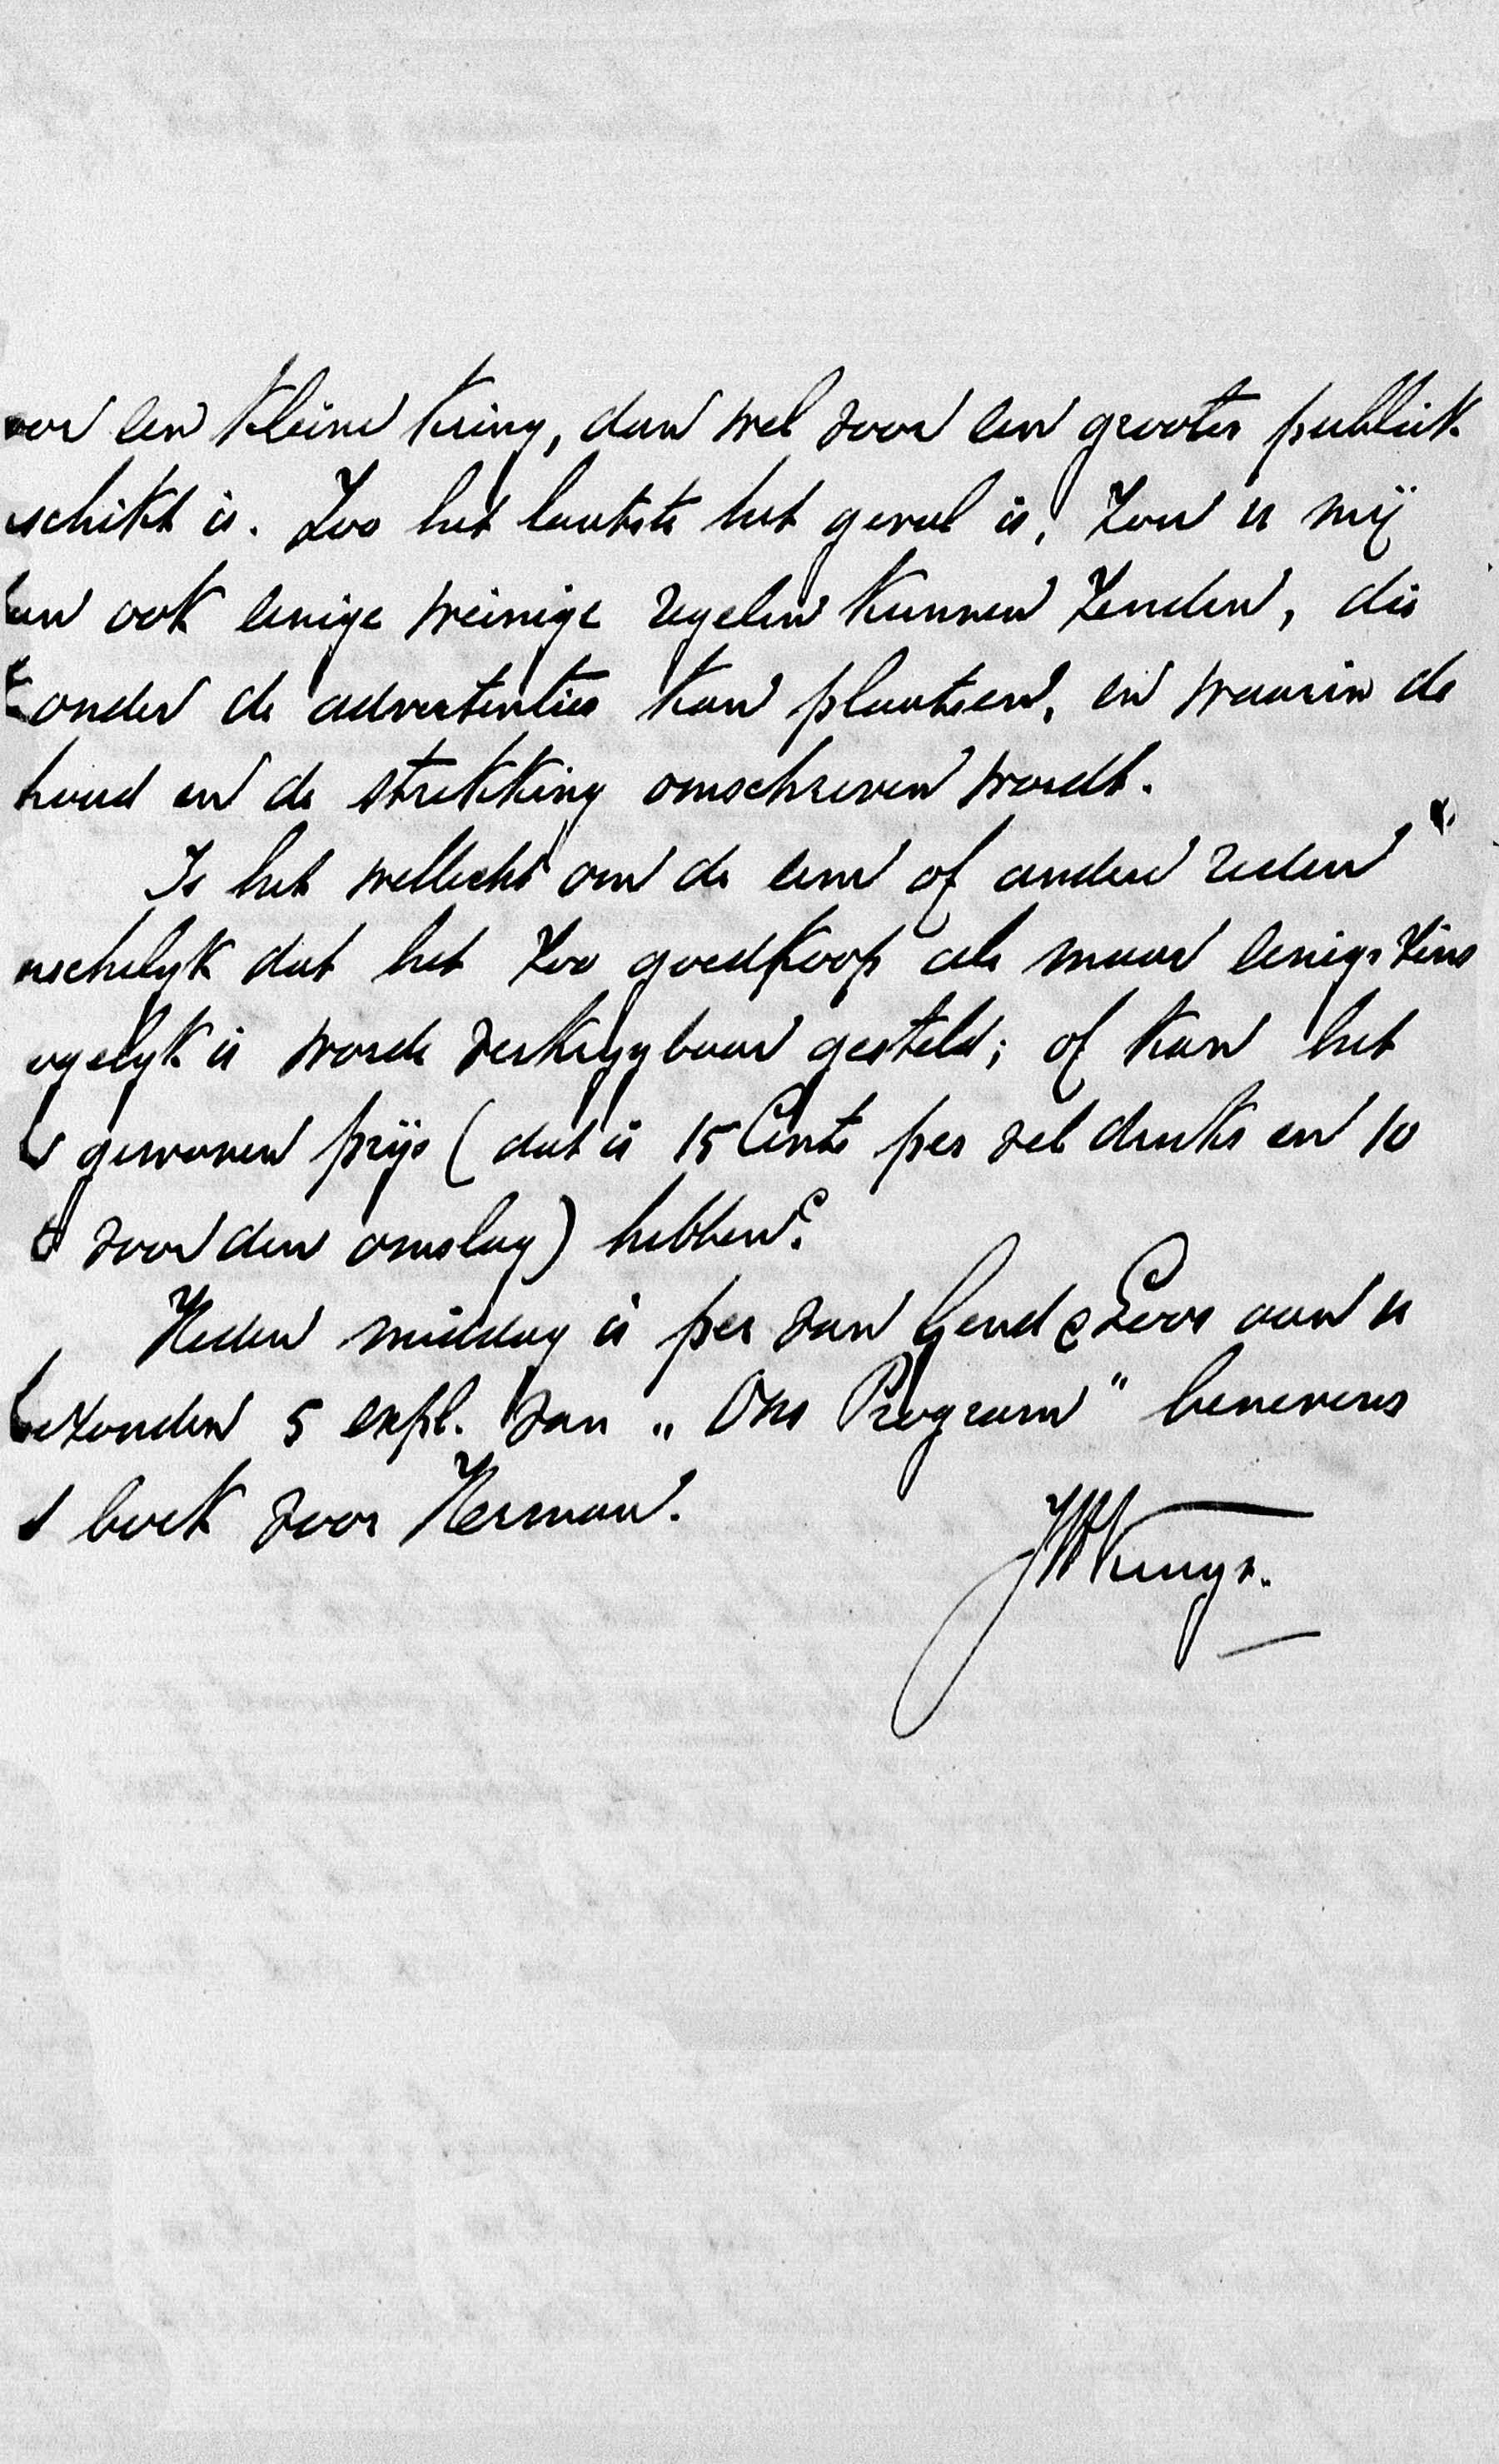 oor een kleine kring, dan wel voor een grooter publiek
schikt is. Zoo het laatste het geval is, zou u mij
an ook eenige weinige regelen kunnen zenden, die
k onder de advertentie kan plaatsen, en waarin de
houd en de strekking omschreven wordt.
Is het wellicht om de eene of andere reden
nschelijk dat het zoo goedkoop als maar eenigszins
ogelijk is worde verkrijgbaar gesteld; of kan het
s gewonen prijs (dat is 15 Cents per vel druks en 10
t voor den omslag) hebben?
Heden middag is per van Gend & Loos aan u
verzonden 5 expl. van „Ons Program" benevens
t boek voor Herman.
JAWruys.